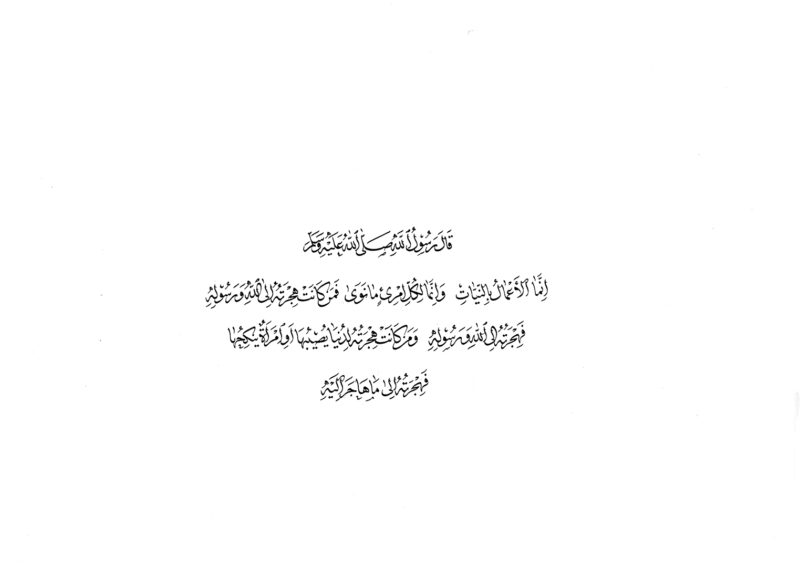 قَالَ رَسُوْلُ اللّٰهِ صَلَى اللّٰهُ عَلَيْهِ وَسَلَّمَ
اِنَّمَا الْاَعْمَالُ بِالنِّيَاتِ وَاِنَّمَا لِكُلِّ امْرِئٍ مَا نَوَى فَمَنْ كَانَتْ هِجْرَتُهُ اِلَى اللّٰهِ وَرَسُوْلِهِ
فَهِجْرَتُهُ اِلَى اللّٰهِ وَرَسُوْلِهِ وَمَنْ كَانَتْ هِجْرَتُهُ لِدُنْيَا يُصِيْبُهَا اَوِ امْرَأَةٍ يَنْكِحُهَا
فَهِجْرَتُهُ اِلَى مَا هَاجَرَ اِلَيْهِ